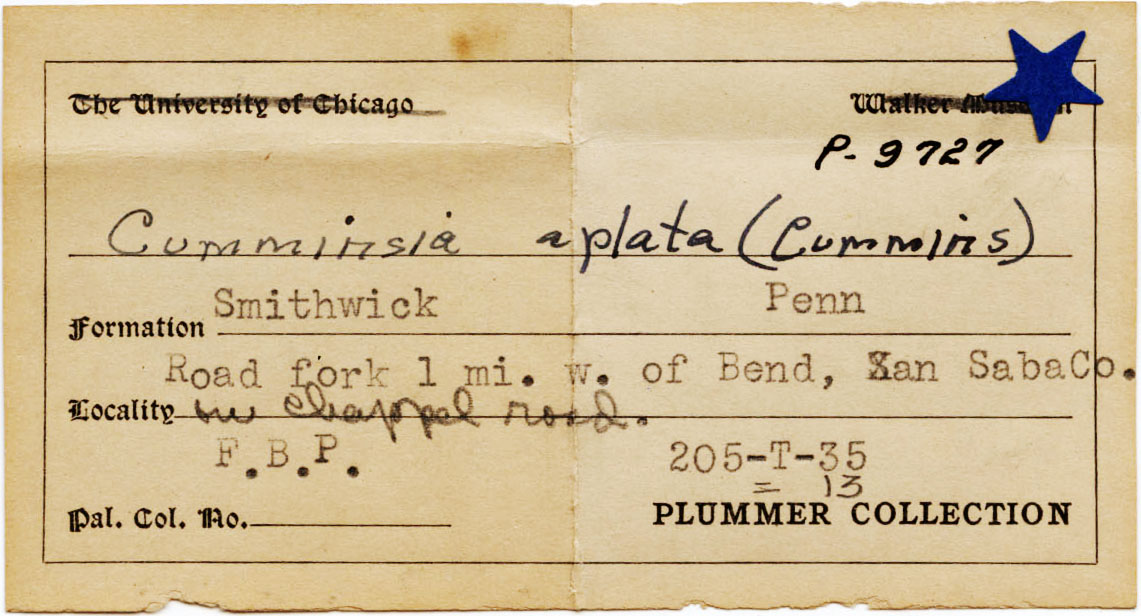 The University of Chicago Walker Museum
P-9727
Cumminsia aplata (Cummins)
Smithwick Penn
Formation
Road fork 1 mi. w. of Bend, San SabaCo.
Locality on Chappel road.
F.B.P. 205-T-35
= 13
Pal. Col. No. PLUMMER COLLECTION